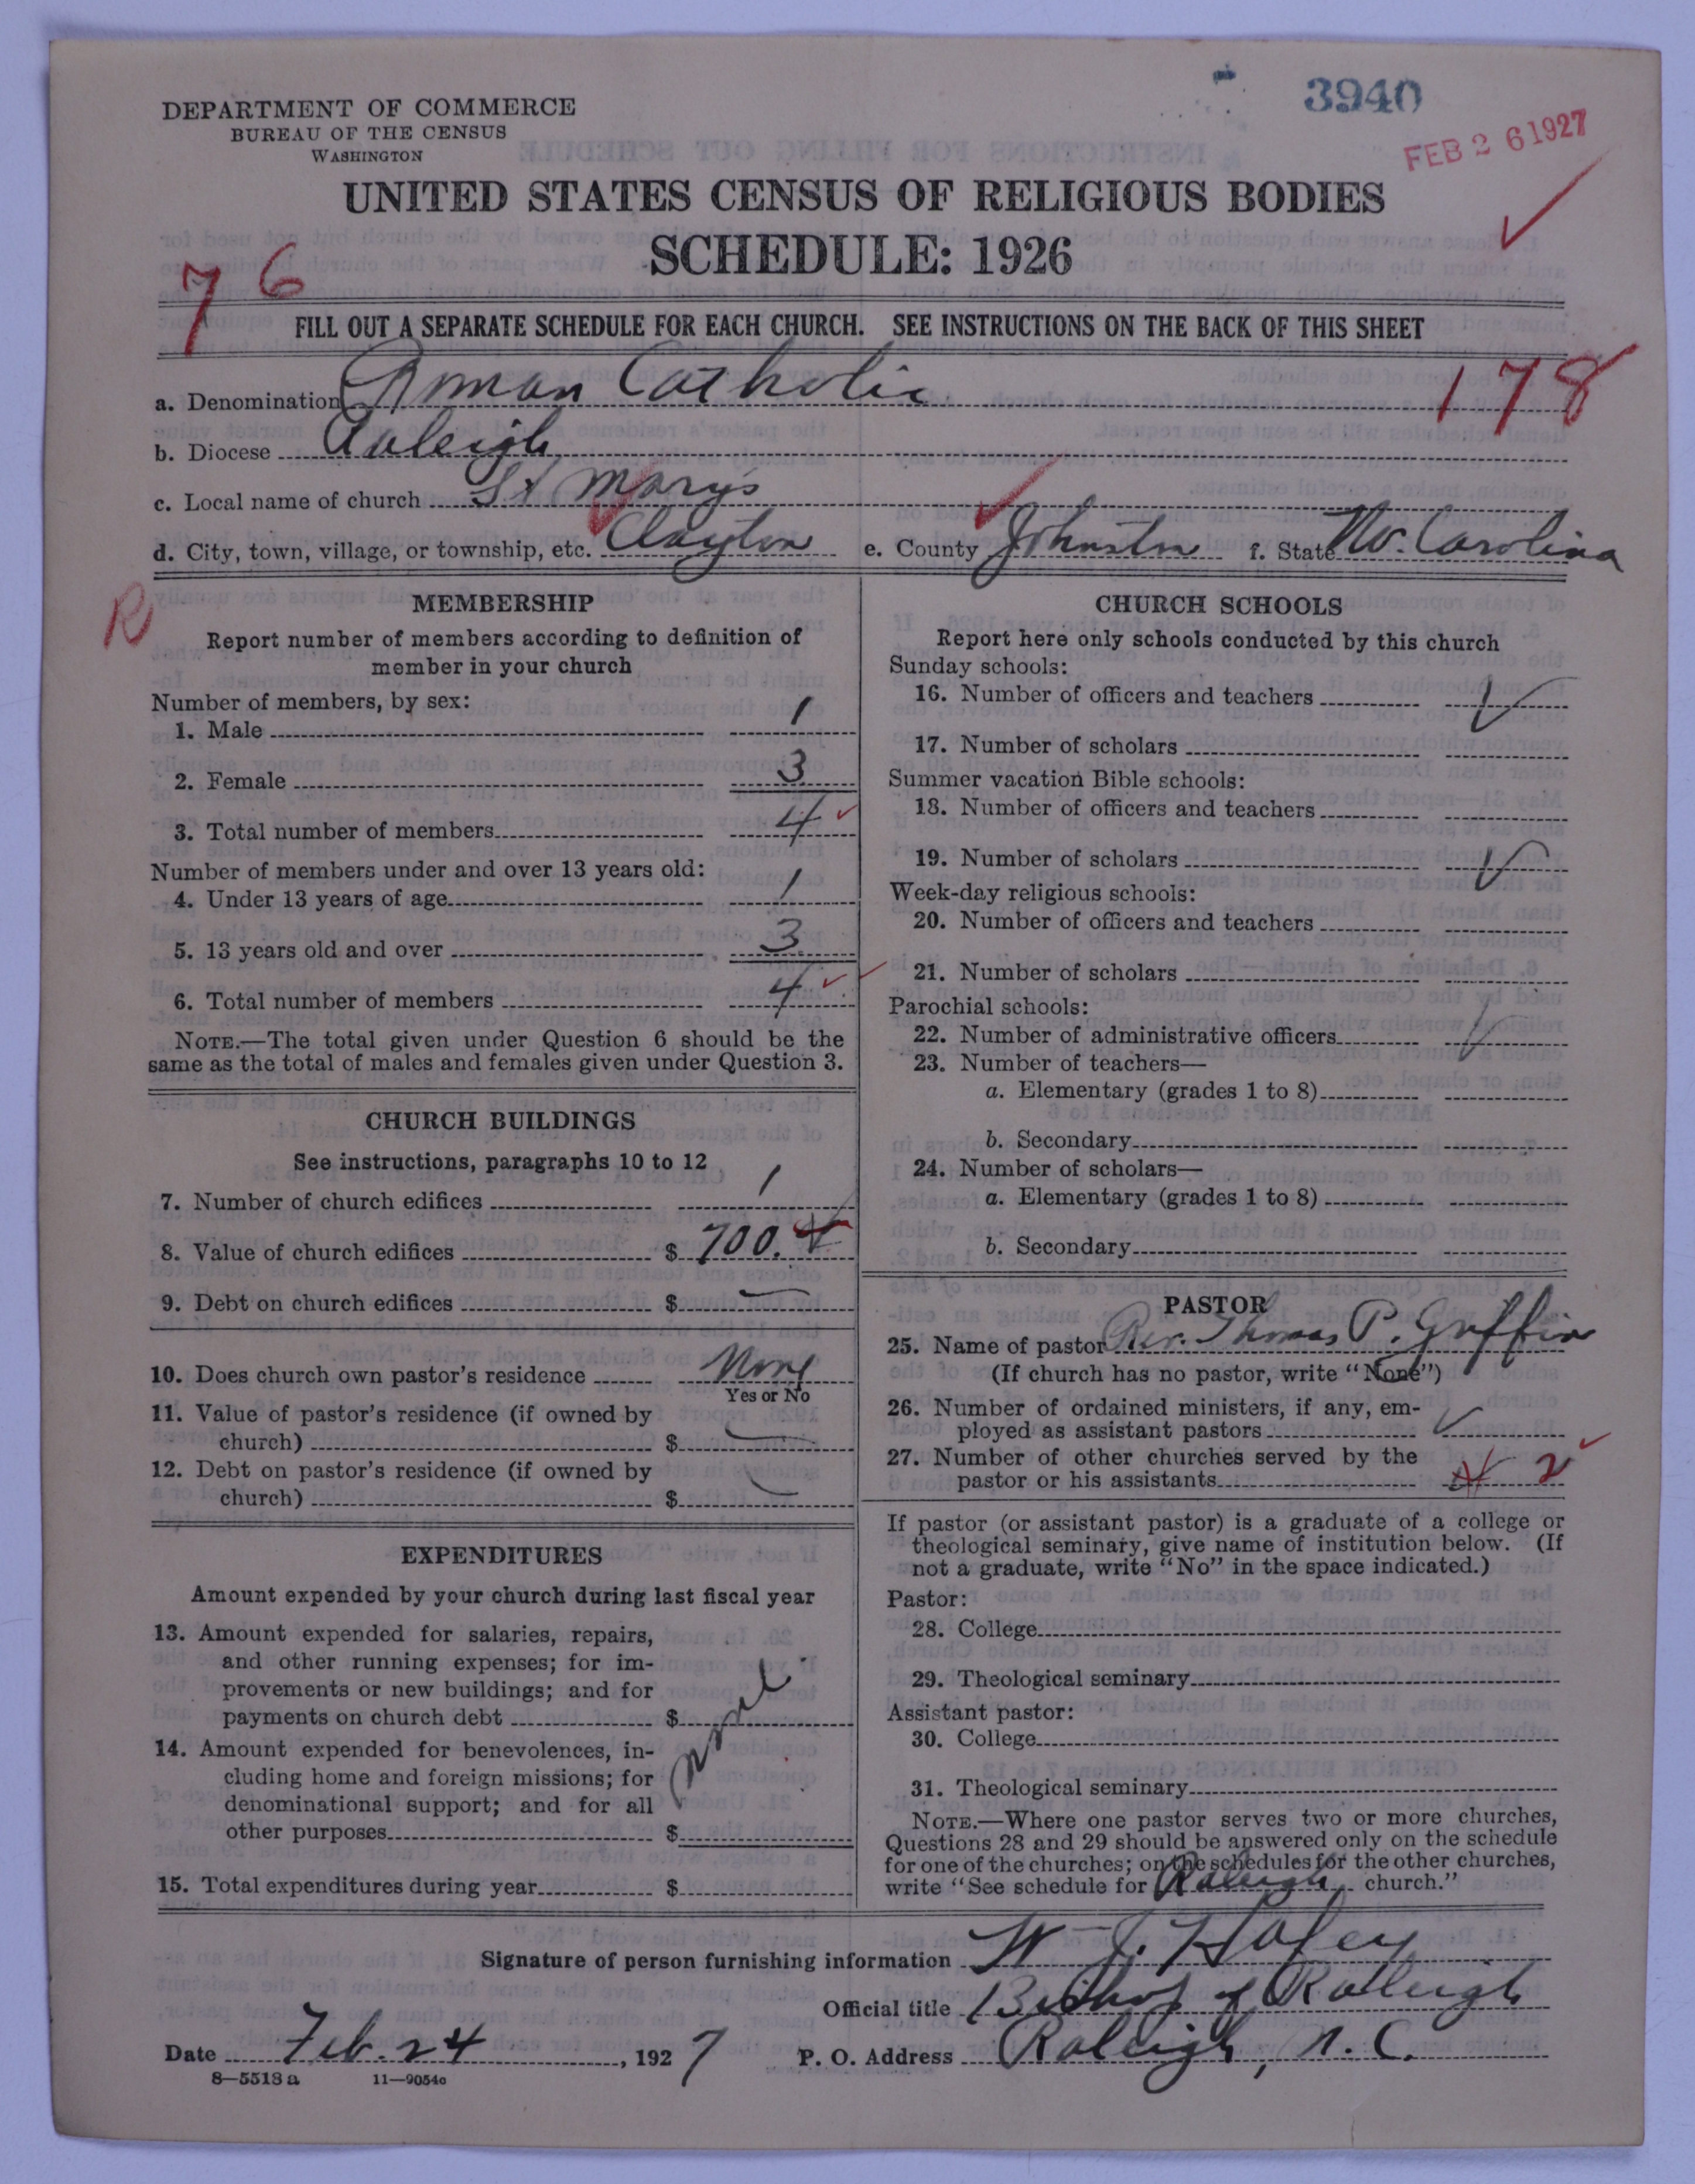 3940
FEB 26 1927
DEPARTMENT OF COMMERCE
BUREAU OF THE CENSUS
WASHINGTON
UNITED STATES CENSUS OF RELIGIOUS BODIES
SCHEDULE: 1926
76
FILL OUT A SEPARATE SCHEDULE FOR EACH CHURCH. SEE INSTRUCTIONS ON THE BACK OF THIS SHEET
a. Denomination Roman Catholic 178
b. Diocese Raleigh
c. Local name of church St Mary's
d. City, town, village, or township, etc. Clayton e. County Johnston f. State No. Carolina
R
MEMBERSHIP
Report number of members according to definition of
member in your church
Number of members, by sex:
1. Male 1
2. Female 3
3. Total number of members 4
Number of members under and over 13 years old:
4. Under 13 years of age 1
5. 13 years old and over 3
6. Total number of members 4
NOTE.—The total given under Question 6 should be the
same as the total of males and females given under Question 3.
CHURCH BUILDINGS
See instructions, paragraphs 10 to 12
7. Number of church edifices 1
8. Value of church edifices $ 700.
9. Debt on church edifices $
10. Does church own pastor's residence None
Yes or No
11. Value of pastor's residence (if owned by
church) $
12. Debt on pastor's residence (if owned by
church) $
EXPENDITURES
Amount expended by your church during last fiscal year
13. Amount expended for salaries, repairs,
and other running expenses; for im-
provements or new buildings; and for
payments on church debt $
14. Amount expended for benevolences, in-
cluding home and foreign missions; for
denominational support; and for all
other purposes $
15. Total expenditures during year $
CHURCH SCHOOLS
Report here only schools conducted by this church
Sunday schools:
16. Number of officers and teachers
17. Number of scholars
Summer vacation Bible schools:
18. Number of officers and teachers
19. Number of scholars
Week-day religious schools:
20. Number of officers and teachers
21. Number of scholars
Parochial schools:
22. Number of administrative officers
23. Number of teachers—
a. Elementary (grades 1 to 8)
b. Secondary
24. Number of scholars—
a. Elementary (grades 1 to 8)
b. Secondary
PASTOR
25. Name of pastor Rev. Thomas P. Griffin
(If church has no pastor, write "None")
26. Number of ordained ministers, if any, em-
ployed as assistant pastors
27. Number of other churches served by the
pastor or his assistants 2
If pastor (or assistant pastor) is a graduate of a college or
theological seminary, give name of institution below. (If
not a graduate, write "No" in the space indicated.)
Pastor:
28. College
29. Theological seminary
Assistant pastor:
30. College
31. Theological seminary
NOTE.—Where one pastor serves two or more churches,
Questions 28 and 29 should be answered only on the schedule
for one of the churches; on the schedules for the other churches,
write "See schedule for Raleigh church."
Signature of person furnishing information W J. Hafey
Official title Bishop of Raleigh
Date Feb. 24, 1927 P. O. Address Raleigh, N. C.
8—5518a 11—9054c